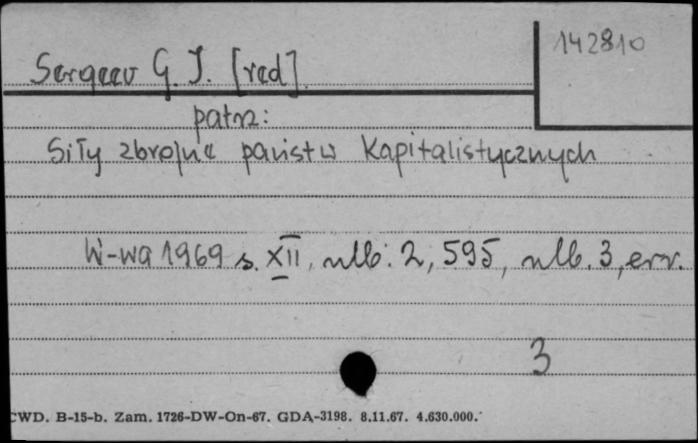 142810
Sergeev G. I. [red]
patrz:
Siły zbrojne państw kapitalistycznych
W-wa 1969 s. XII, nlb. 2, 595, nlb. 3, err.
3
CWD. B-15-b. Zam. 1726-DW-On-67. GDA-3198. 8.11.67. 4.630.000.